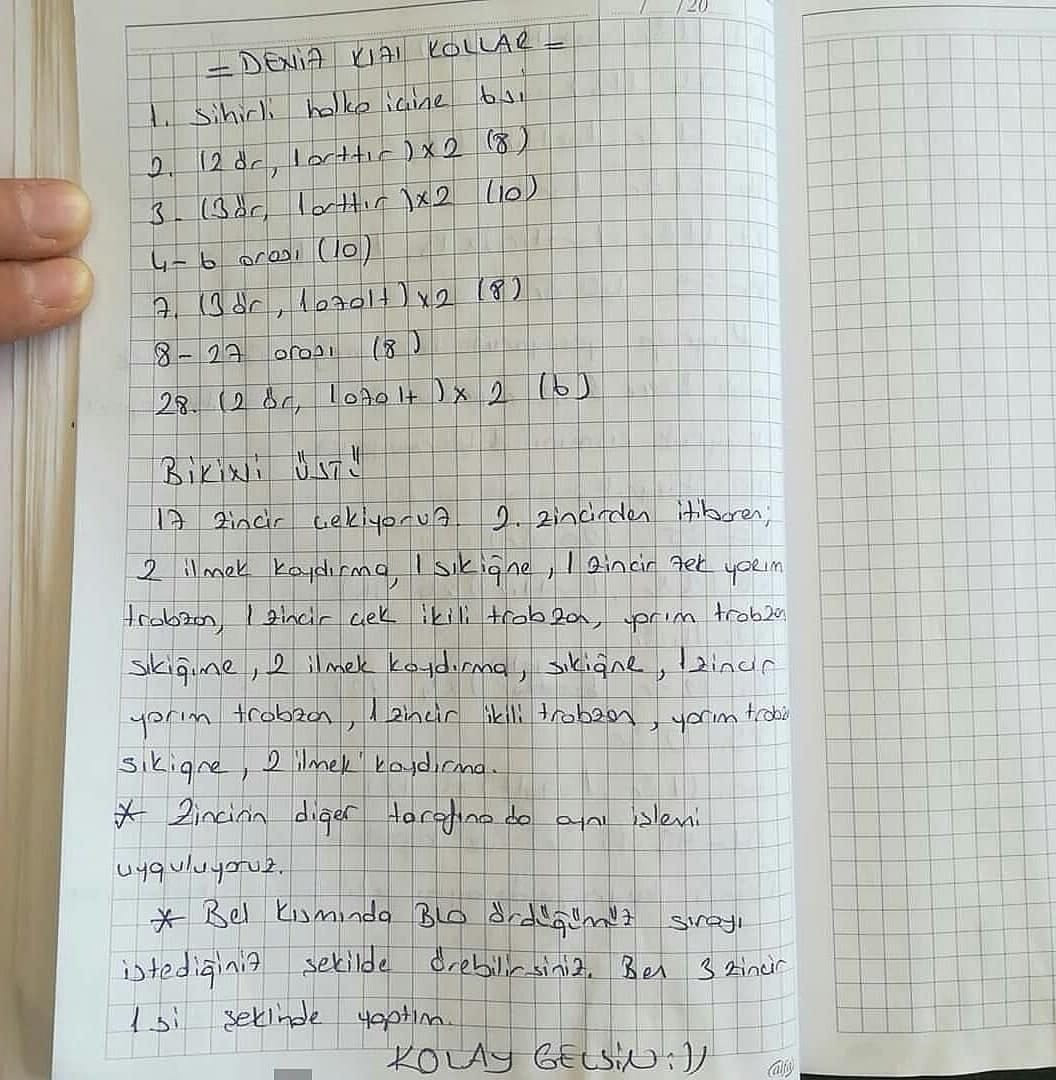 / /20
= DENİZ KIZI KOLLAR =
1. Sihirli halka içine 6si
2. (2 ör, 1 arttır) x 2 (8)
3- (3 ör, 1 arttır) x2 (10)
4-6 arası (10)
7. (3 ör, 1 azalt) x2 (8)
8-27 arası (8)
28. (2 ör, 1 azalt) x 2 (6)
BiKiNi ÜSTÜ
17 zincir çekiyoruz. 2. zincirden itibaren;
2 ilmek kaydırma, 1 sık iğne, 1 zincir çek yarım
trabzan, 1 zincir çek ikili trabzan, yarım trabzan
sık iğne, 2 ilmek kaydırma, sık iğne, 1 zincir
yarım trabzan, 1 zincir ikili trabzan, yarım trabza
sık iğne, 2 ilmek kaydırma.
* Zincirin diğer tarafına da aynı işlemi
uyguluyoruz.
* Bel kısmında BLO ördüğümüz sırayı
istediğiniz şekilde örebilirsiniz. Ben 3 zincir
1 si şekinde yaptım.
KOLAY GELSİN :))